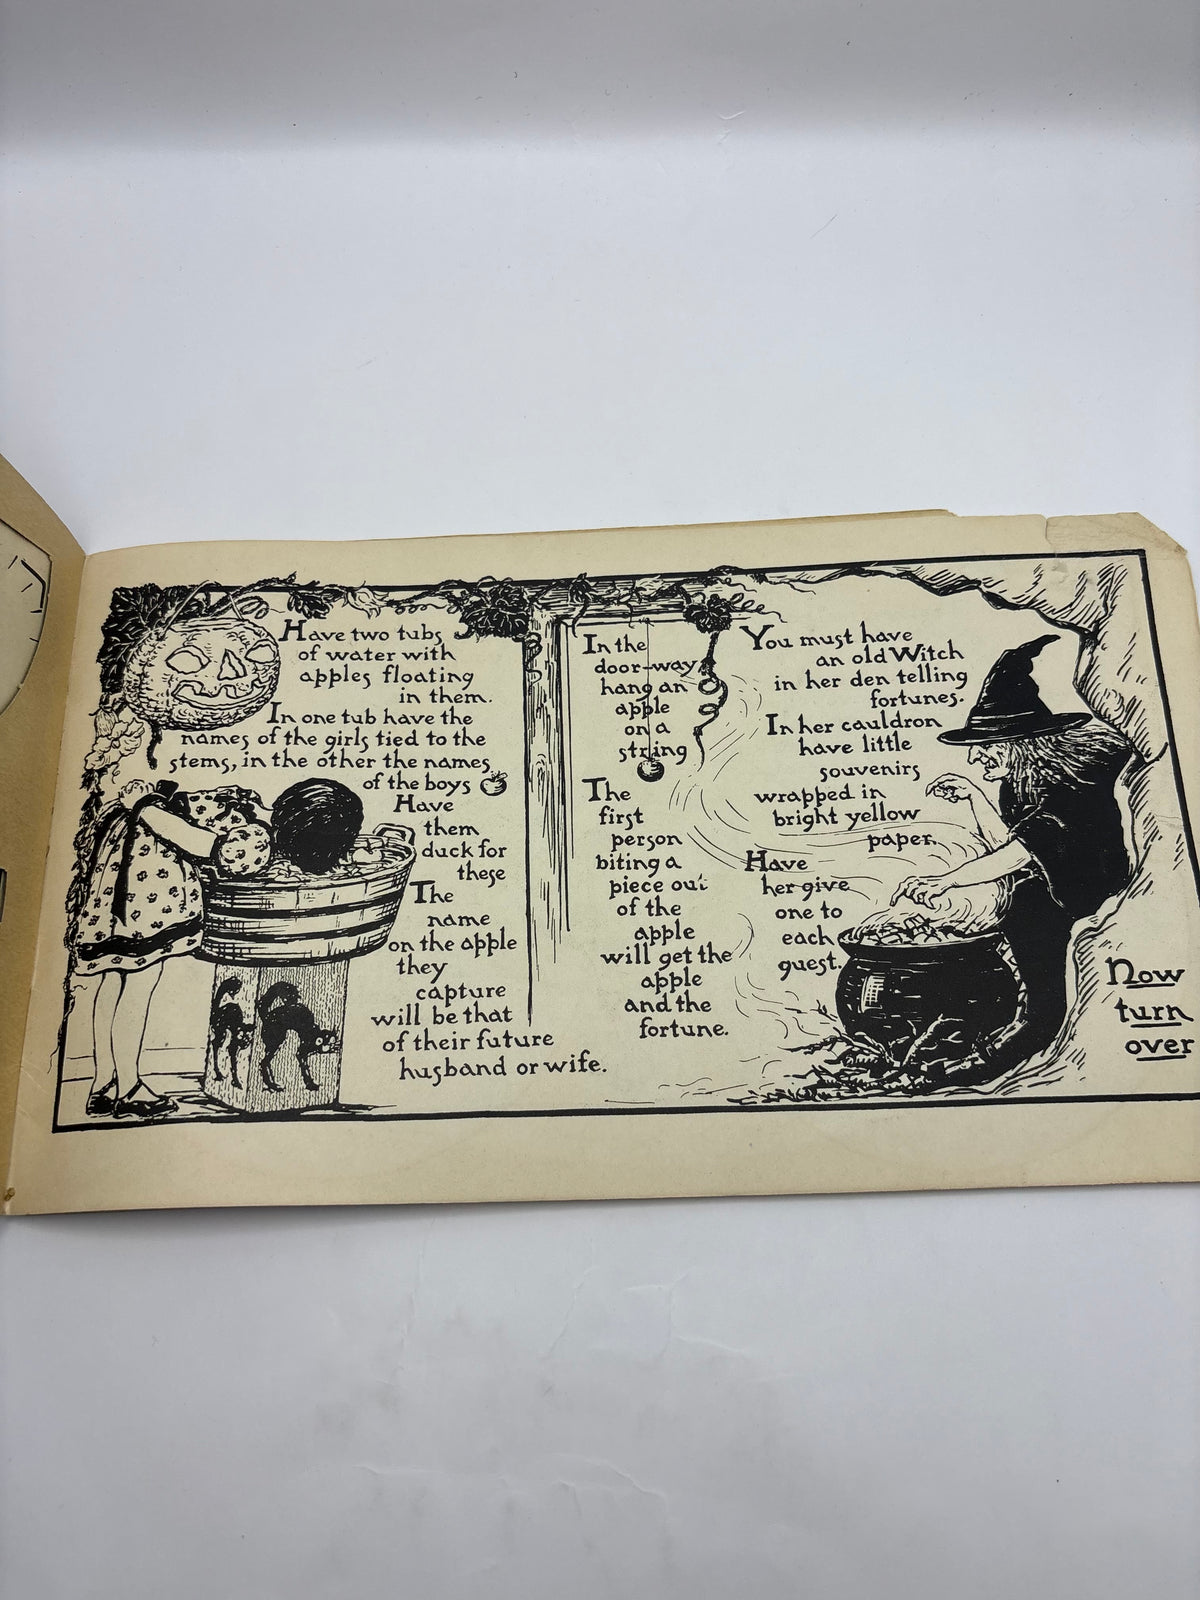 Have two tubs
of water with
apples floating
in them.
In one tub have the
names of the girls tied to the
stems, in the other the names
of the boys
Have
them
duck for
these
The
name
on the apple
they
capture
will be that
of their future
husband or wife.
In the
door-way
hang an
apple
on a
string
The
first
person
biting a
piece out
of the
apple
will get the
apple
and the
fortune.
You must have
an old Witch
in her den telling
fortunes.
In her cauldron
have little
souvenirs
wrapped in
bright yellow
paper.
Have
her give
one to
each
guest.
Now
turn
over